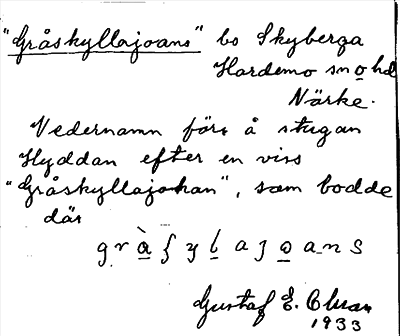 "Gråskyllajoans" bo Skyberga
Hardemo sn o hd
Närke.
Vedernamn förr å stugan
Hyddan efter en viss
"Gråskyllajohan", som bodde
där
g r à ʃ y l a j o a n s
Gustaf E.
1933